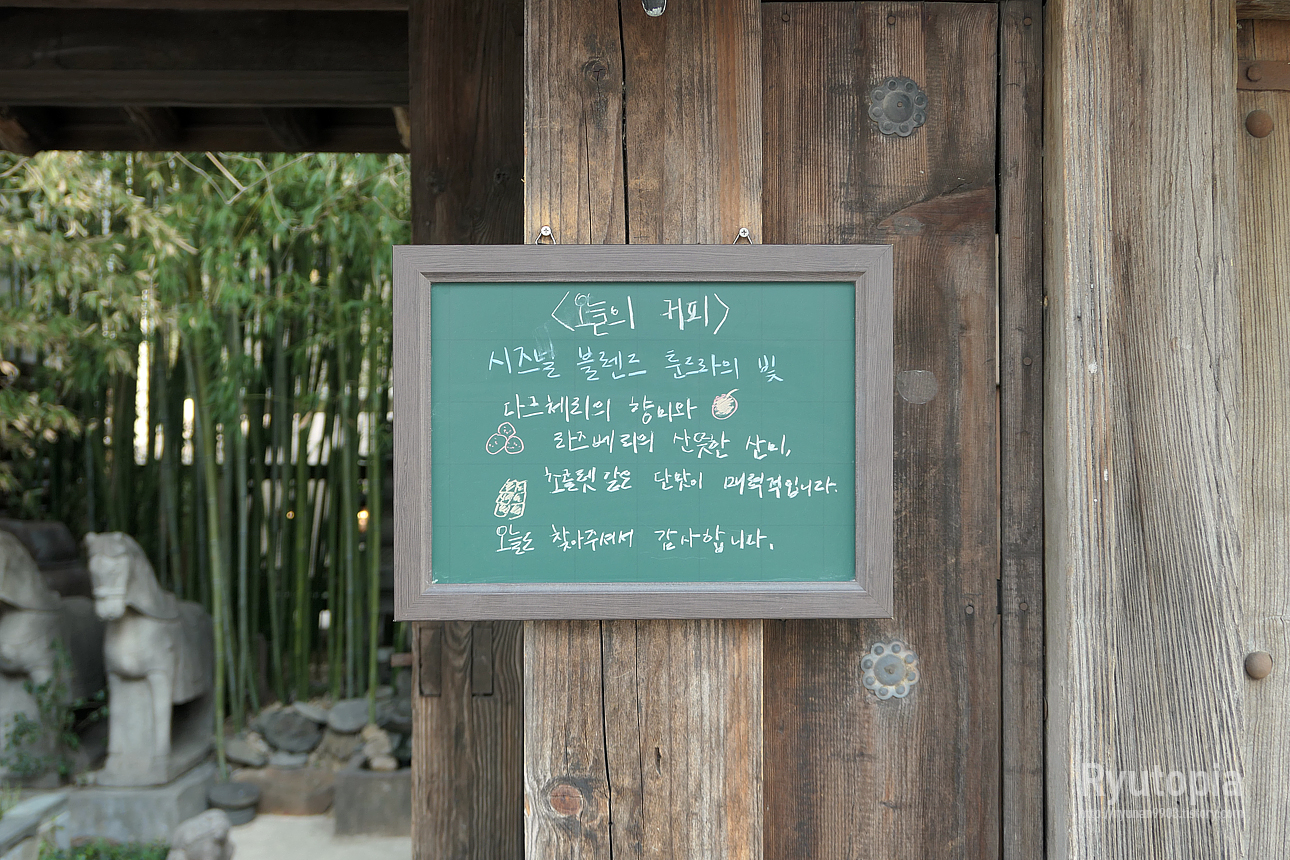 <오늘의 커피>
시즈널 블렌드 툰드라의 빛
다크체리의 향미와
라즈베리의 산뜻한 산미,
초콜렛 같은 단맛이 매력적입니다.
오늘도 찾아주셔서 감사합니다.
Ryutopia